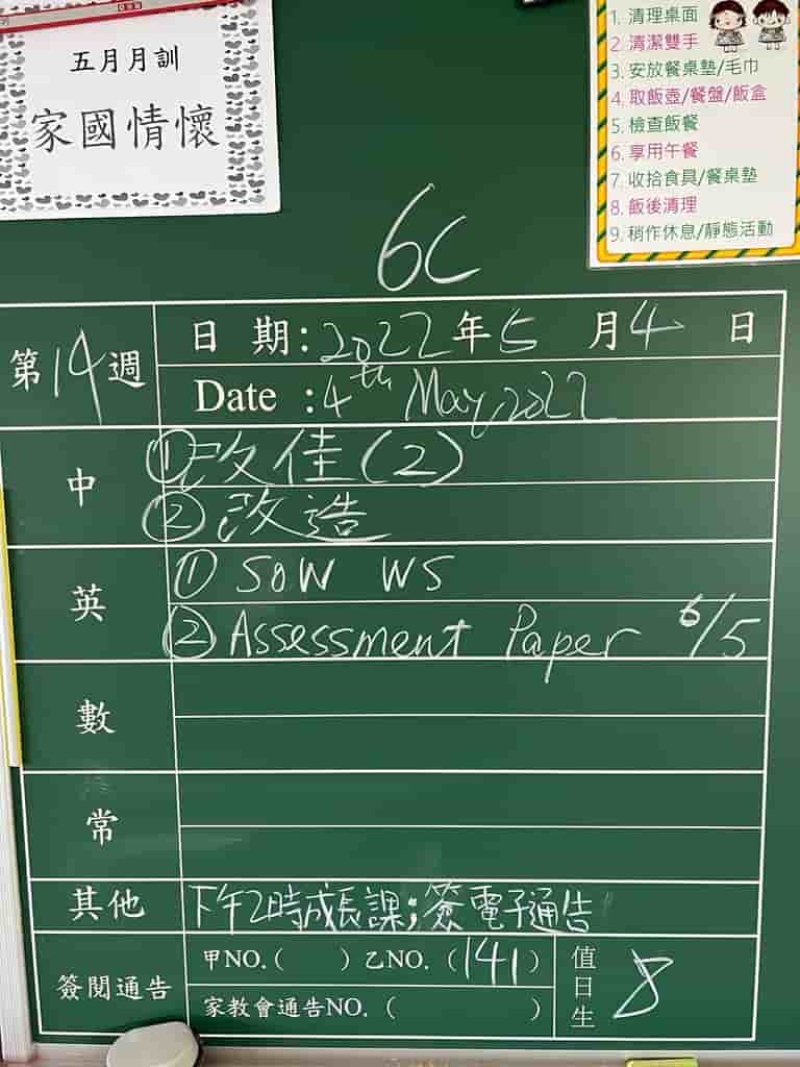 五月月訓
家國情懷
1. 清理桌面
2. 清潔雙手
3. 安放餐桌墊/毛巾
4. 取飯壺/餐盤/飯盒
5. 檢查飯餐
6. 享用午餐
7. 收拾食具/餐桌墊
8. 飯後清理
9. 稍作休息/靜態活動
6C
第14週
日 期:2022年5月4日
Date :4th May 2022
中
①改佳(2)
②改造
英
① SOW WS
② Assessment Paper 6/5
數
常
其他
下午2時成長課;簽電子通告
簽閱通告
甲NO.( ) 乙NO.(141)
家教會通告NO.( )
值日生
8